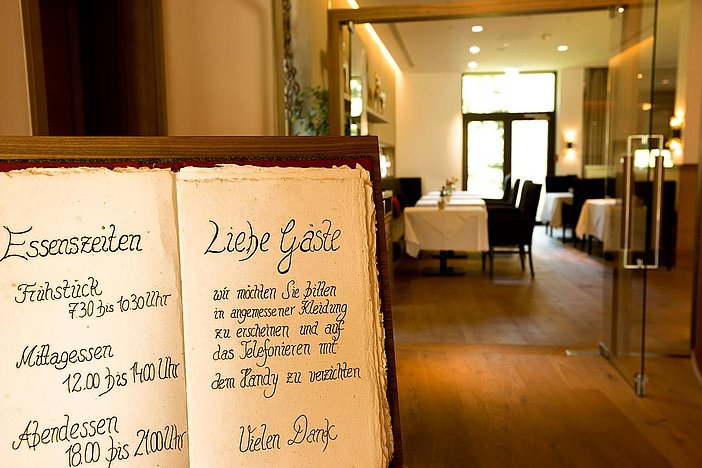 Essenszeiten
Frühstück
7.30 bis 10.30 Uhr
Mittagessen
12.00 bis 14.00 Uhr
Abendessen
18.00 bis 21.00 Uhr
Liebe Gäste
wir möchten Sie bitten
in angemessener Kleidung
zu erscheinen und auf
das Telefonieren mit
dem Handy zu verzichten
Vielen Dank